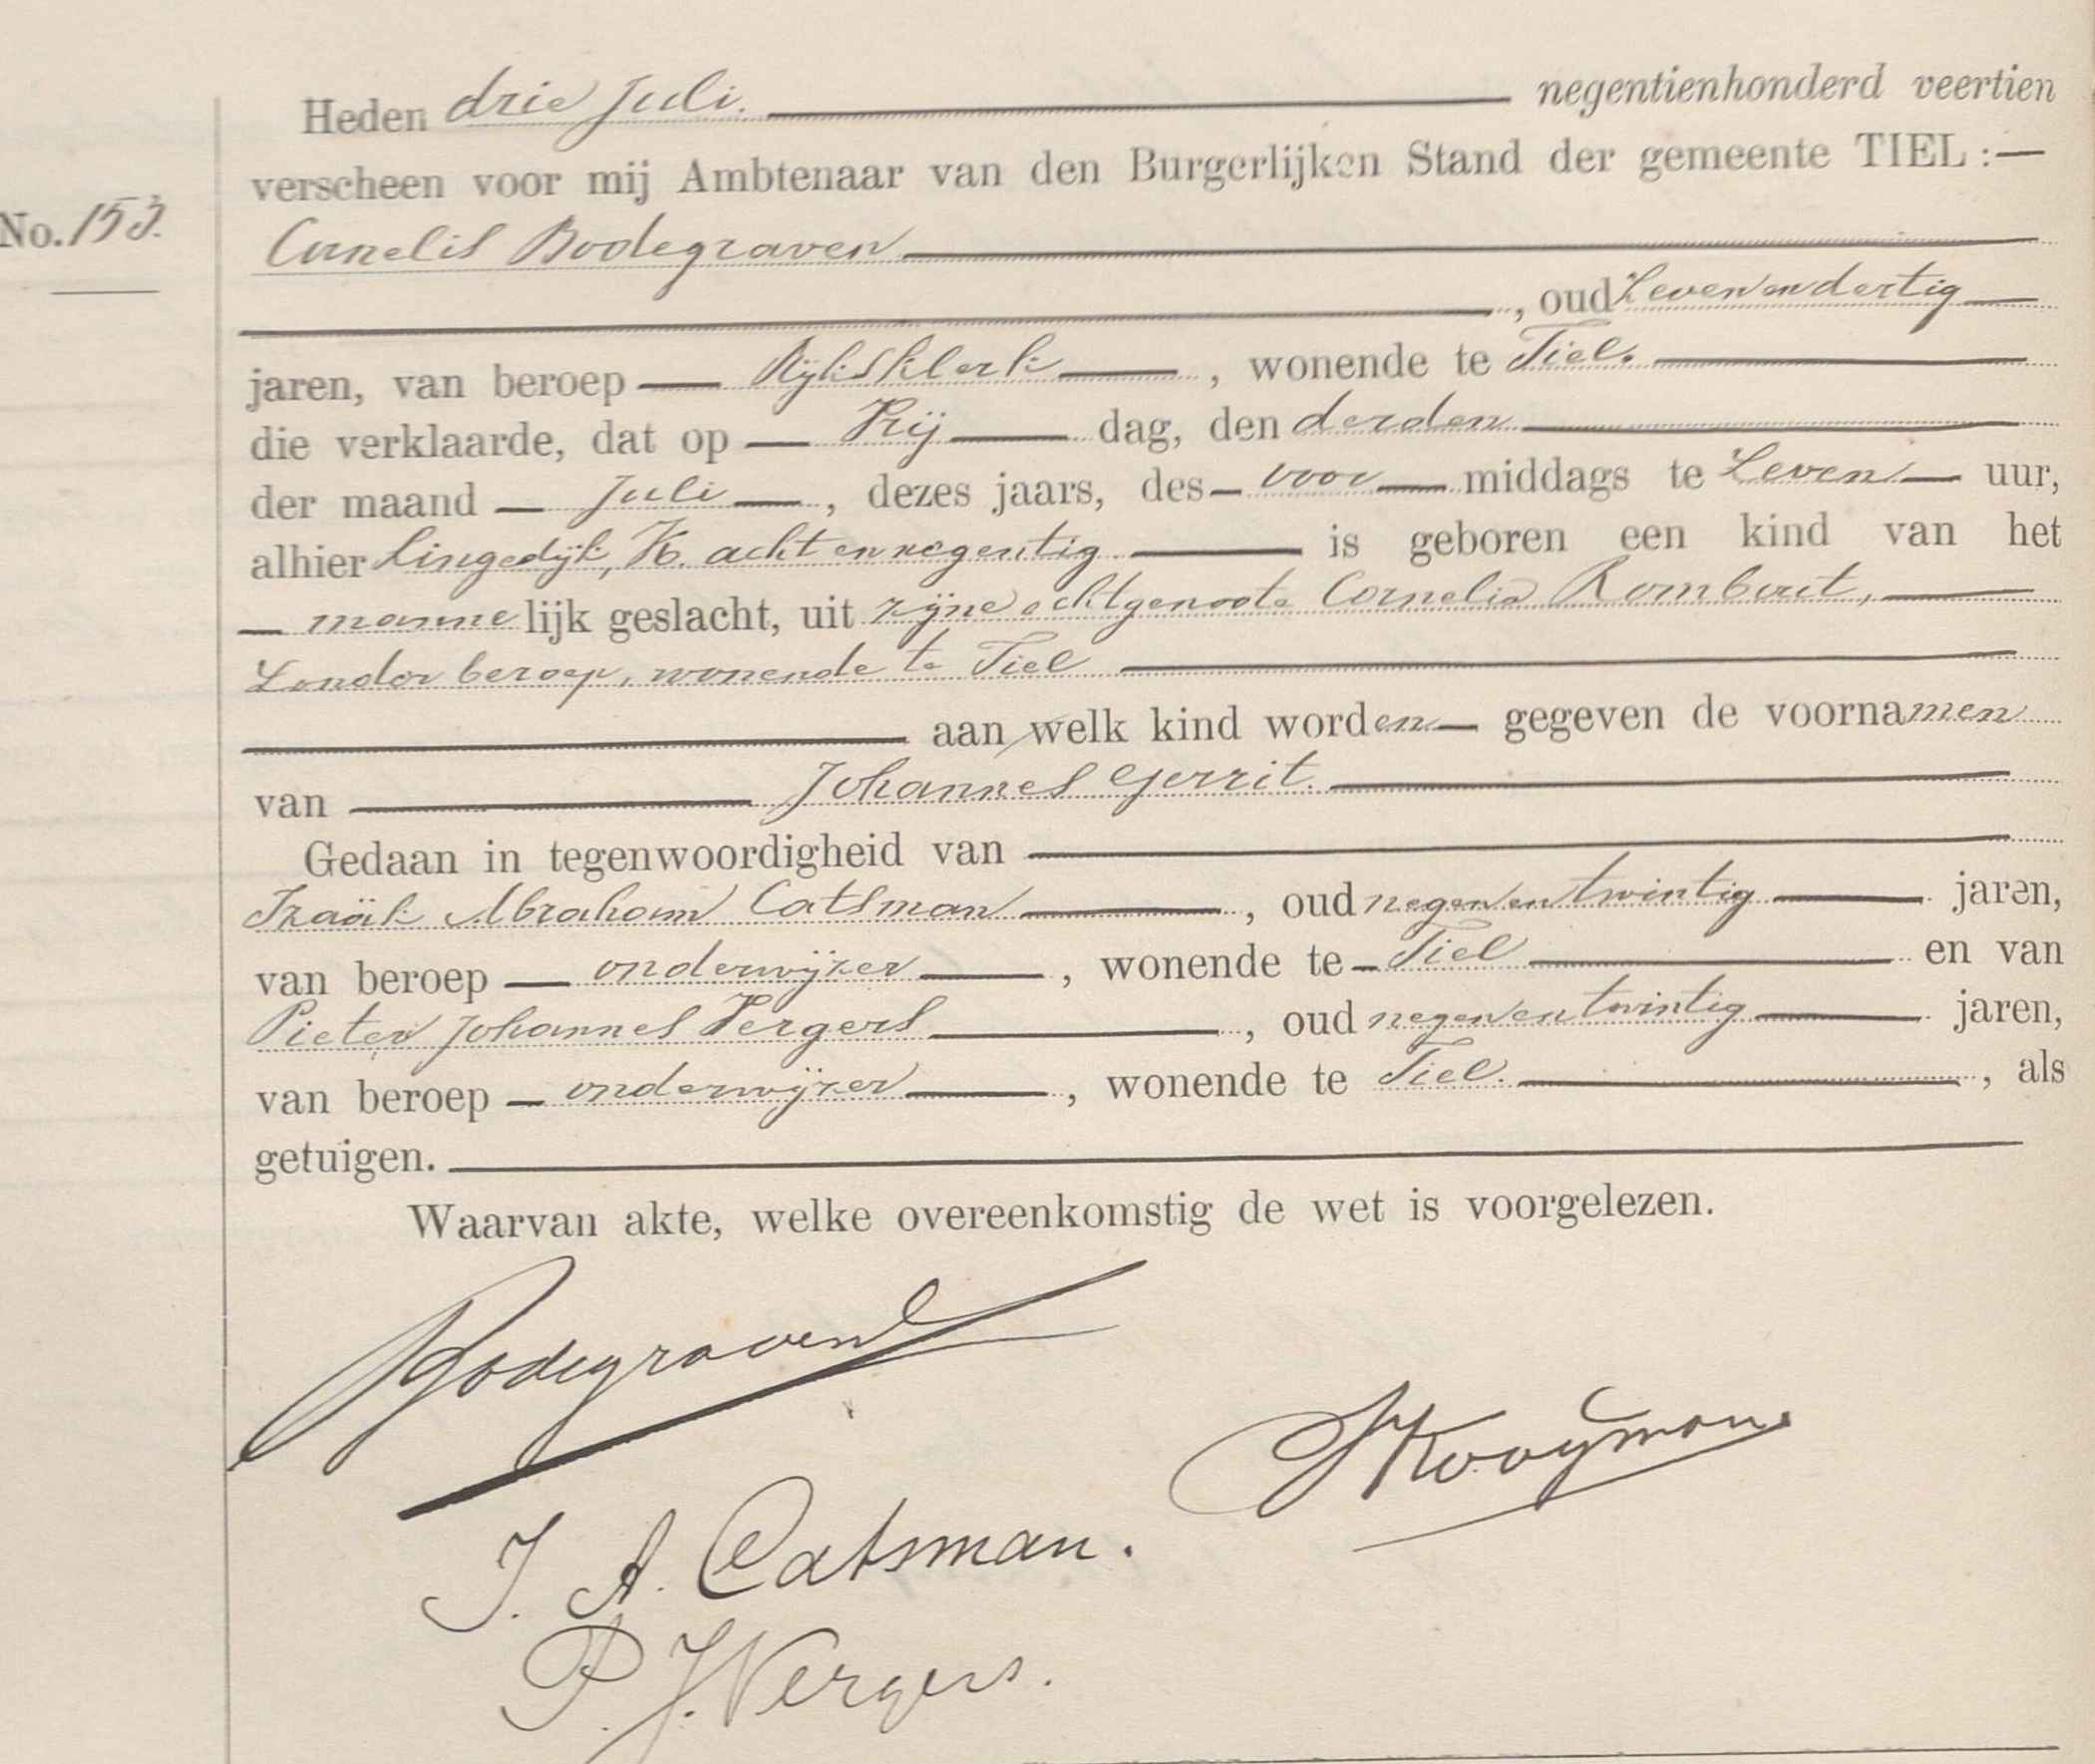 Heden drie Juli. negentienhonderd veertien
verscheen voor mij Ambtenaar van den Burgerlijken Stand der gemeente TIEL :—
No. 153.
Cornelis Bodegraven
, oud Zevenendertig
jaren, van beroep — Rijksklerk — , wonende te Tiel.
die verklaarde, dat op — Vrij — dag, den derden
der maand — Juli — , dezes jaars, des — voor — middags te Zeven — uur,
alhier Lingedijk, K. acht en negentig — is geboren een kind van het
— manne lijk geslacht, uit zijne echtgenoote Cornelia Rombout,
Zonder beroep, wonende te Tiel
aan welk kind worden — gegeven de voornamen
van Johannes Gerrit.
Gedaan in tegenwoordigheid van
Izaäk Abraham Catsman , oud negenentwintig jaren,
van beroep — onderwijzer , wonende te — Tiel en van
Pieter Johannes Vergers , oud negenentwintig jaren,
van beroep — onderwijzer , wonende te Tiel. , als
getuigen.
Waarvan akte, welke overeenkomstig de wet is voorgelezen.
Bodegraven
Kooyman
J. A. Catsman.
P. J. Vergers.